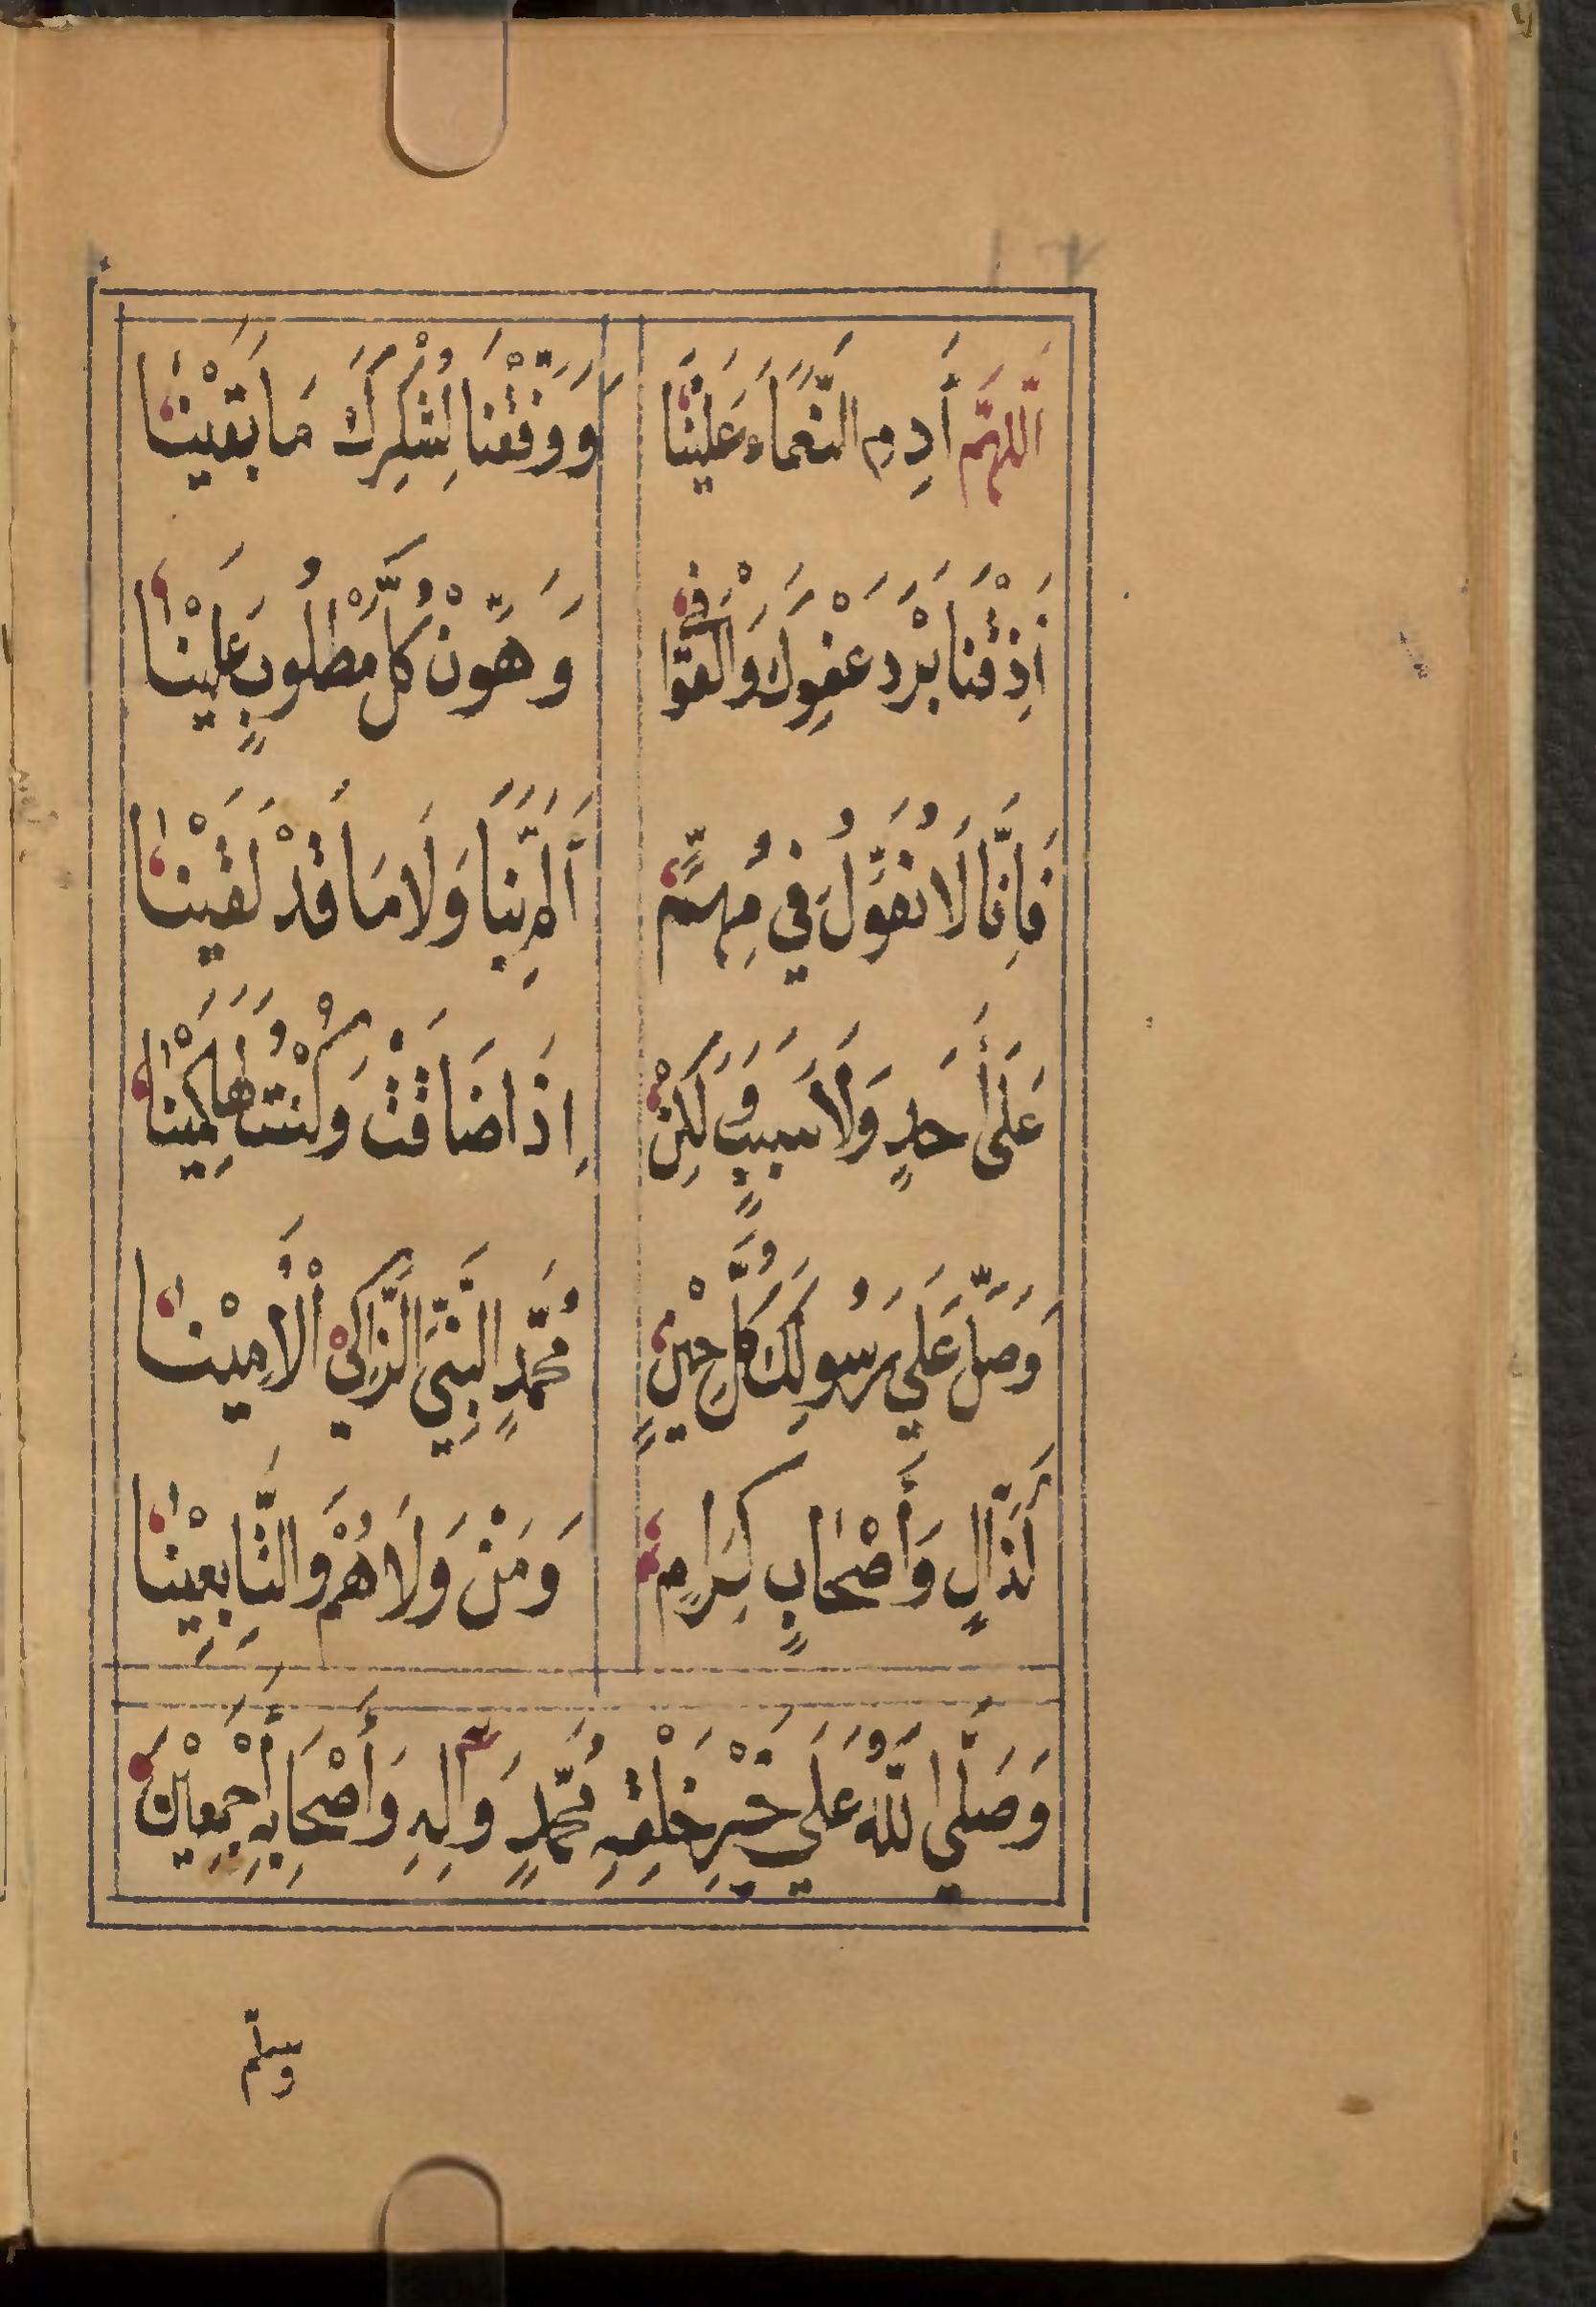 اَللّٰهُمَّ أَدِمِ النَّعْمَاءَ عَلَيْنَا وَوَفِّقْنَا لِشُكْرِكَ مَا بَقَيْنَا
أَذِقْنَا بَرْدَ عَفْوِكَ وَالْعَوَافِي وَهَوِّنْ كُلَّ مَطْلُوبٍ عَلَيْنَا
فَاِنَّا لَا نُعَوِّلُ فِي مُهِمٍّ أَلَمَّ بِنَا وَلَا مَا قَدْ لَقَيْنَا
عَلَى أَحَدٍ وَلَا سَبَبٍ وَلَكِنْ اِذَا ضَاقَتْ وَكُنْتَ لَهَا كَمِيْنَا
وَصَلِّ عَلَي رَسُولِكَ كُلَّ حِيْنٍ مُحَمَّدٍ النَّبِيِّ الزَّاكِيْ الْأَمِيْنَا
كَذَا آلٍ وَأَصْحَابٍ كِرَامٍ وَمَنْ وَلَاهُمْ وَالتَّابِعِيْنَا
وَصَلَّي اللّٰهُ عَلَي خَيْرِ خَلْقِهِ مُحَمَّدٍ وَآلِهِ وَأَصْحَابِهِ أَجْمَعِيْنَ
وسلّم